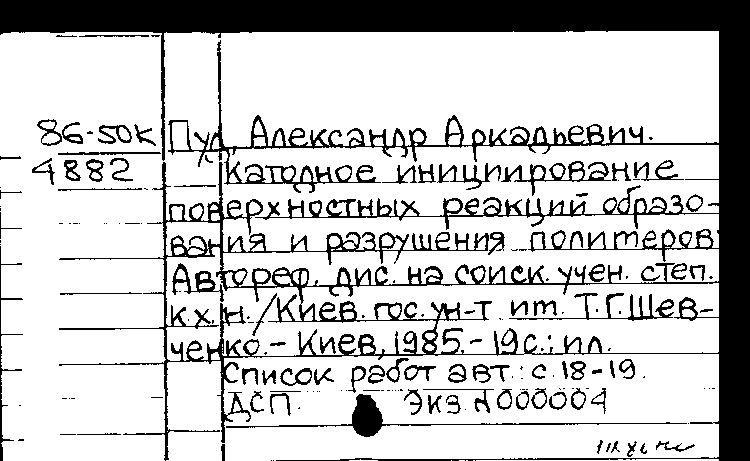 86-50к Пуд, Александр Аркадьевич.
4882 Катодное инициирование
поверхностных реакций образо-
вания и разрушения политеров
Автореф. дис. на соиск. учен. степ.
к.х.н. /Киев. гос. ун-т им. Т.Г.Шев-
ченко.- Киев, 1985.- 19с.: ил.
Список работ авт.: с.18-19.
ДСП. Экз. N000004